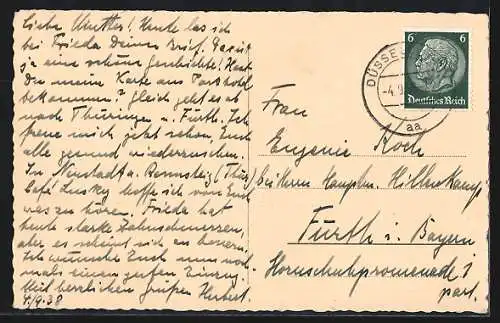 Liebe Mutter! Heute las ich
bei Frieda Deinen Brief. Da ist
ja eine schöne Geschichte! Hast
Du meine Karte aus
bekommen? Gleich geht es ab
nach Thüringen u. Fürth. Ich
freue mich jetzt schon Euch
alle gesund wiederzusehen.
In Neustadt a. Rennsteig (Thür)
Café Lusky hoffe ich von Euch
was zu hören. Frieda hat
heute starke Zahnschmerzen,
aber es scheint sich zu bessern.
Ich wünsche Euch noch
mals einen guten Einzug.
Mit herzlichen Grüßen Herbert.
4/9.38
6 6
Deutsches Reich
DÜSSE
-4.9
aa
Frau
Eugenie Koch
bei Herrn Hauptm. Hillenkamp
Fürth i. Bayern
Hornschuhpromenade 1
part.